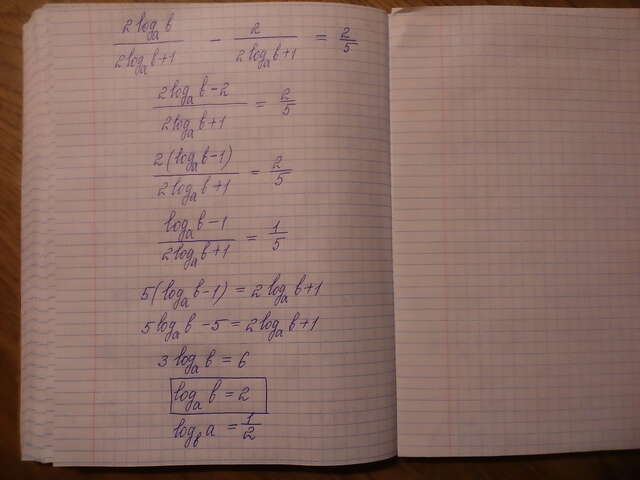 2logₐb/(2logₐb+1) − 2/(2logₐb+1) = 2/5
(2logₐb−2)/(2logₐb+1) = 2/5
2(logₐb−1)/(2logₐb+1) = 2/5
(logₐb−1)/(2logₐb+1) = 1/5
5(logₐb−1) = 2logₐb+1
5logₐb−5 = 2logₐb+1
3logₐb = 6
logₐb = 2
log_b a = 1/2